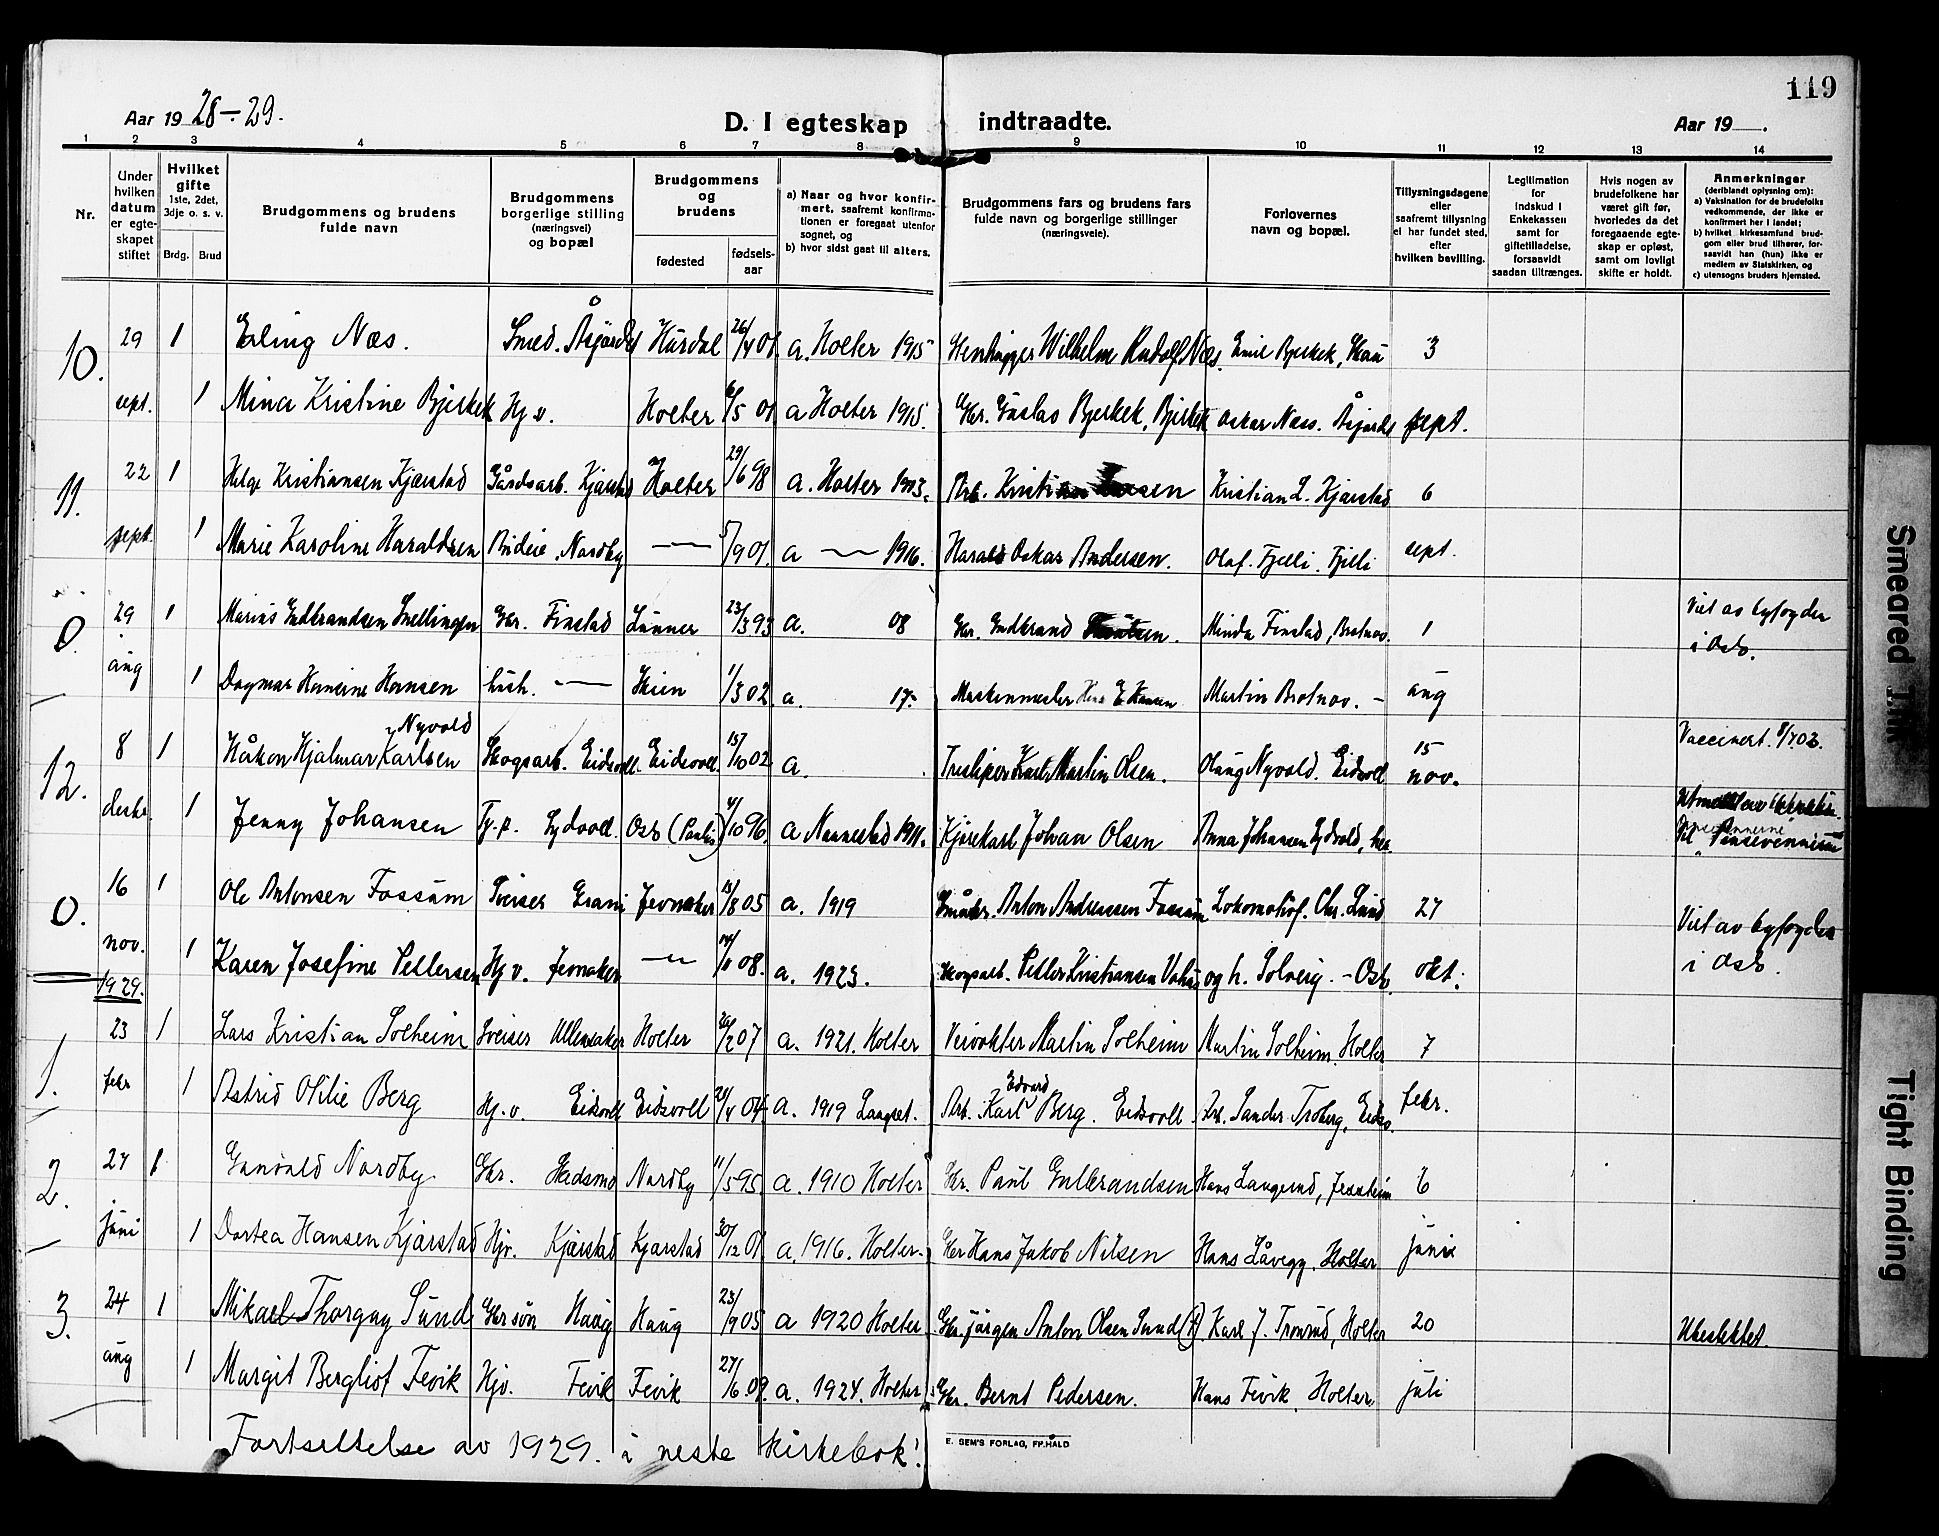 119
Aar 19 28-29.
D. I egteskap indtraadte.
Aar 19 .
1 2 3 4 5 6 7 8 9 10 11 12 13 14
Nr.
Under hvilken datum er egteskapet stiftet
Hvilket gifte 1ste, 2det, 3dje o. s. v.
Brdg. Brud
Brudgommens og brudens fulde navn
Brudgommens borgerlige stilling (næringsvei) og bopæl
Brudgommens og brudens
fødested fødsels-aar
a) Naar og hvor konfirmert, saafremt konfirmationen er foregaat utenfor sognet, og
b) hvor sidst gaat til alters.
Brudgommens fars og brudens fars fulde navn og borgerlige stillinger (næringsveie).
Forlovernes navn og bopæl.
Tillysningsdagene eller saafremt tillysning ei har fundet sted, efter hvilken bevilling.
Legitimation for indskud i Enkekassen samt for giftetilladelse, forsaavidt saadan tiltrænges.
Hvis nogen av brudefolkene har været gift før, hvorledes da det foregaaende egteskap er opløst, samt om lovligt skifte er holdt.
Anmerkninger (deriblandt oplysning om):
a) Vaksination for de brudefolks vedkommende, der ikke er konfirmert her i landet;
b) hvilket kirkesamfund brudgom eller brud tilhører, forsaavidt han (hun) ikke er medlem av Statskirken, og
c) utensogns bruders hjemsted.
10. 29 1 Erling Næs. Smed. Åsjordet Hurdal 26/4 01 a. Holter 1915 Wilhelm Rudolf Næs. Emil Bjerkek, 3
sept. 1 Mina Kristine Bjerkek Hj v. Holter 6/5 01 a Holter 1915. Gbr. Gustav Bjerkek, Bjerkek Oskar Næss. sept.
11. 22 1 Helge Kristiansen Kjærstad Gårdsarb. Kjærstad Holter 29/6 98 a. Holter 1913. Arb. Kristian Kristian L. Kjærstad 6
sept. 1 Marie Karoline Haraldsen Budeie. Nordby 5/9 01. a 1916. Harald Oskar Andersen. Olaf. Fjelli. Fjelli sept.
0. 29 1 Marius Gudbrandsen Snellingen Gbr. Finstad Lunner 23/3 93 a. 08 Gbr. Gudbrand Minda Finstad, Brotnov. 1 Viet av byfogden
aug 1 Dagmar Hansen hush. Skien 1/3 02 a. 17. Maskinmester E Hansen Martin Brotnov. aug i Oslo.
12. 8 1 Håkon Hjalmar Karlsen Nyvold Skogsarb. Eidsvoll. Eidsvoll. 15/10 02 a. Karl Martin Olsen. Olaug Nyvold. Eidsvoll 15 nov. Vaccinert. 8/7 03.
desbr. 1 Jenny Johansen Oslo (Paulus) 4/10 96 a Nannestad 1911. Kjørekarl Johan Olsen Anna Johansen
Til Pinsevennerne
0. 16 1 Ole Antonsen Fossum Sveiser Grani Jevnaker 13/8 05 a. 1919 Småbr. Anton Andreassen Fossum Lokomotivf. Chr. Lund 27 Viet av byfogden
nov. 1 Karen Josefine Pettersen Hj v. Jevnaker 08. a. 1923. Skogsarb. Petter Kristiansen og h. Solveig. - Oslo. okt. i Oslo.
1929.
1. 23 1 Lars Kristian Solheim Sveiser Ullensaker Holter 26/2 07 a. 1921. Holter Veivokter Martin Solheim Martin Solheim, Holter 7
febr 1 Astrid Otilie Berg Hj. v. Eidsvoll Eidsvoll 04 a. 1919 Langset. Arb. Karl Edvard Berg. Eidsvoll. Arb. Sander Troberg, Eidsv. febr.
2. 27 1 Gunvald Nordby Gbr. Skedsmo Nordby 11/5 95. a. 1910 Holter Gbr. Paul Gulbrandsen Hans Langerud, Jessheim 6
juni 1 Dortea Hansen Kjærstad Hjv. Kjærstad Kjærstad 30/12 01 a. 1916. Holter. Gbr Hans Jakob Nilsen Hans Låvegg, Holter juni
3. 24 1 Mikael Thorgny Sund Gbr søn Haug Haug 23/9 05 a 1920 Holter Gbr. Jørgen Anton Olsen Sund Karl J. Tronrud, Holter 20 Ubeslektet.
aug 1 Margit Bergliot Fevik Hjv. Fevik Fevik 27/6. 09. a. 1924. Holter Gbr. Bernt Pedersen. Hans Fevik, Holter juli
Fortsettelse av 1929. i neste kirkebok!
E. SEM'S FORLAG, FR.HALD
Smeared Ink
Tight Binding